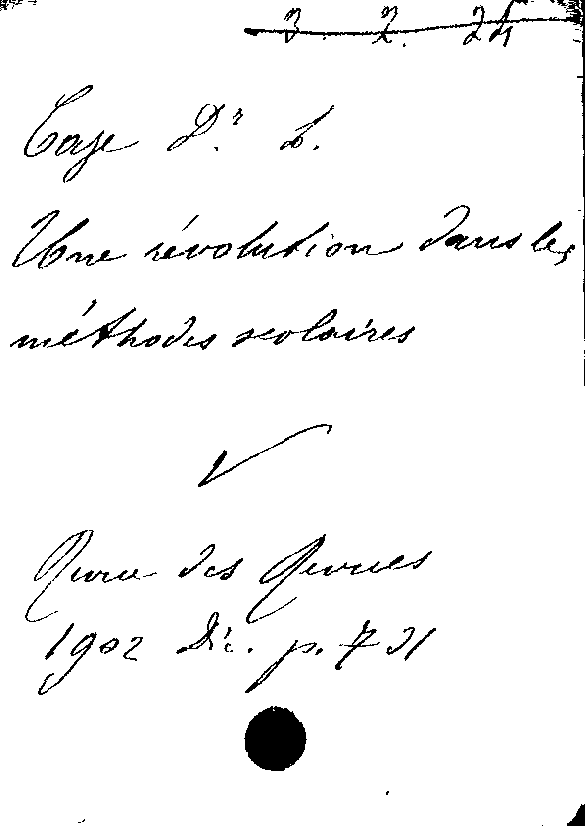 3. 2. 24
Caze Dr L.
Une révolution dans les
méthodes scolaires
Revue des Revues
1902 Déc. p. 731